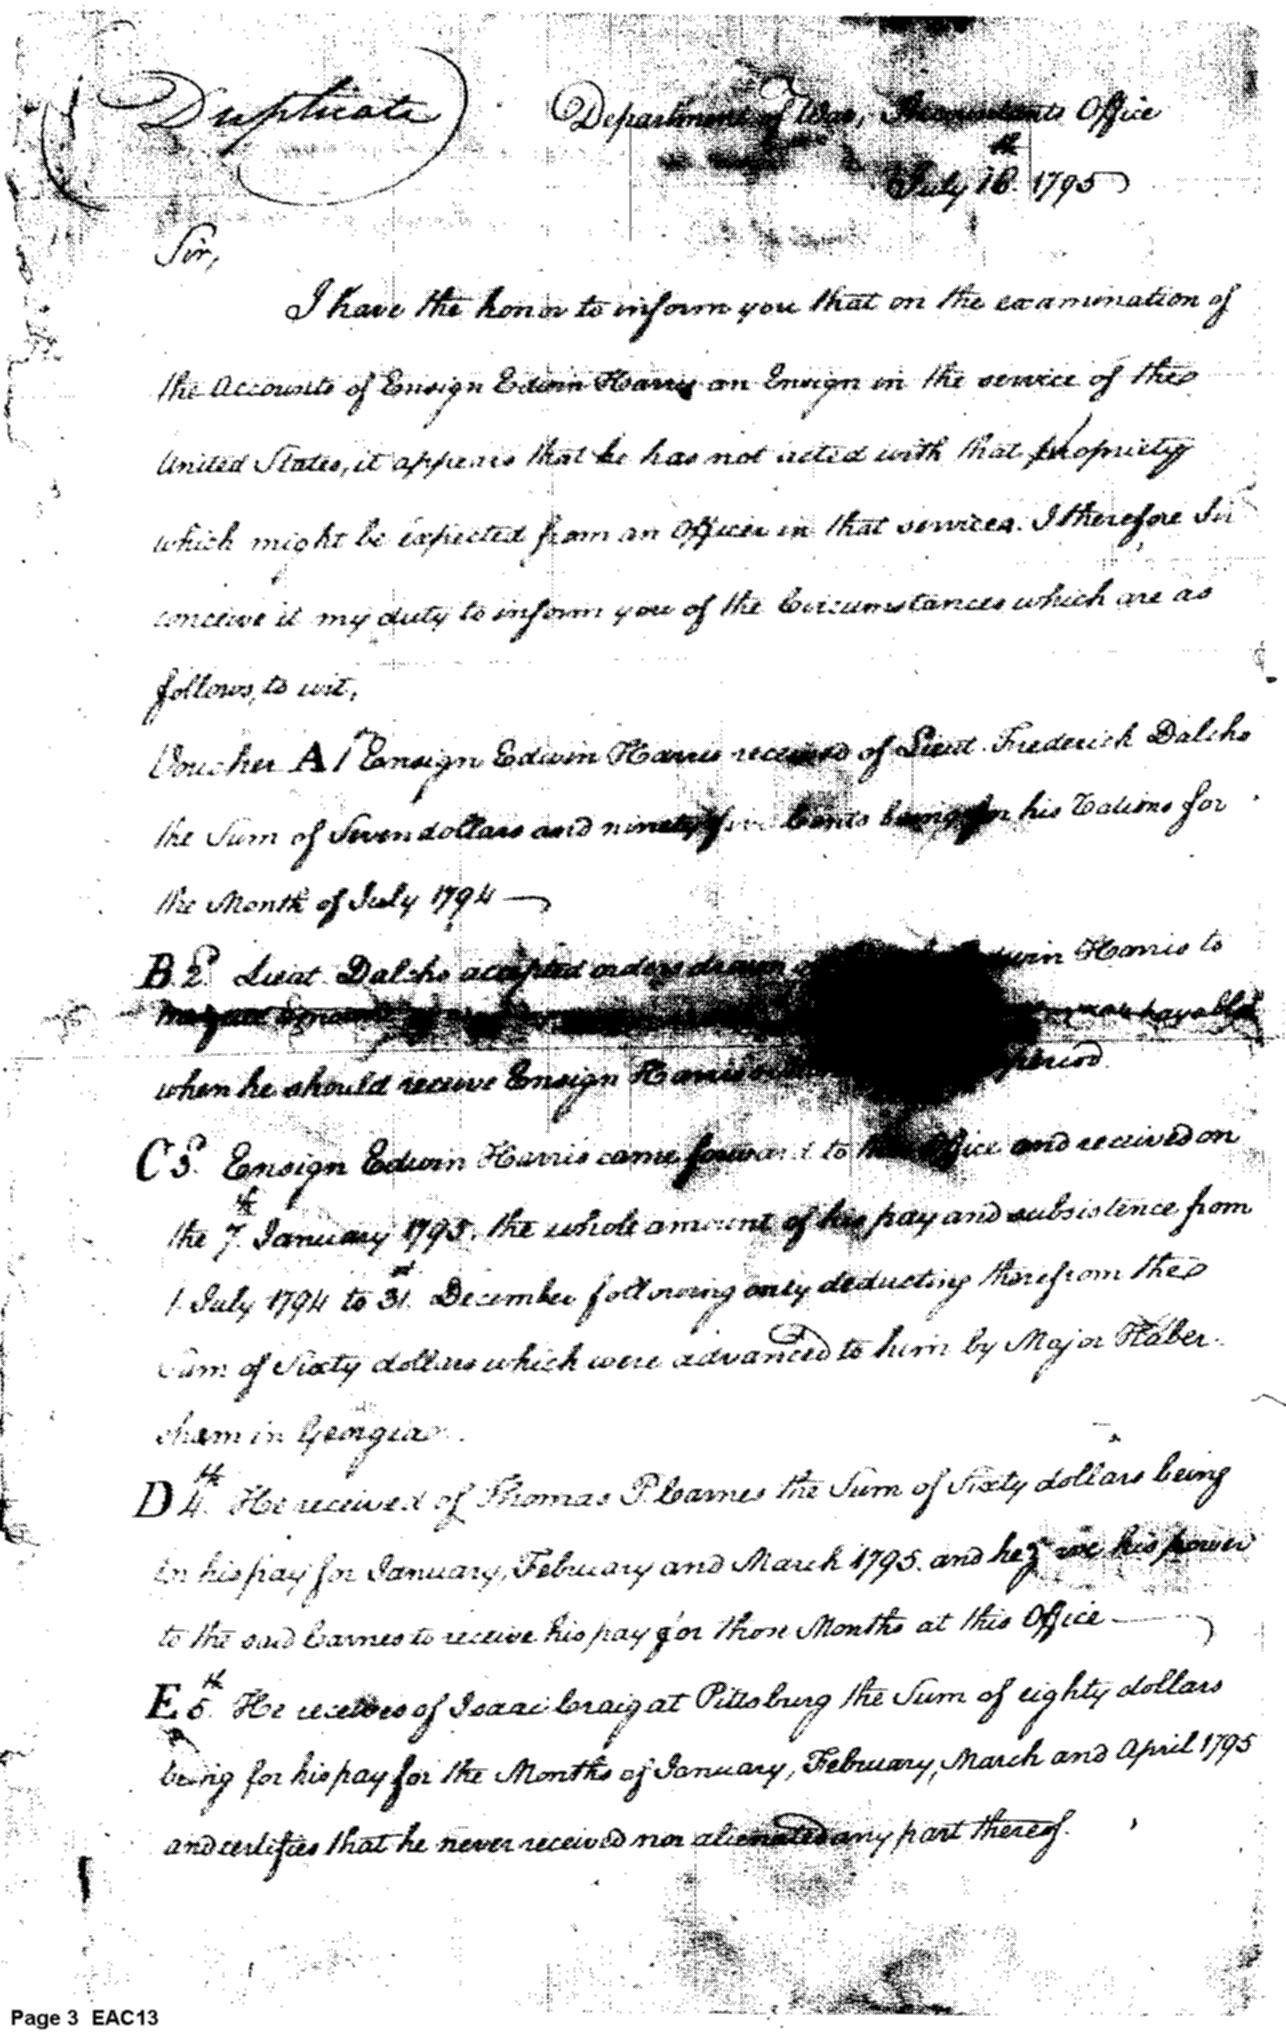 Duplicate
Department of War, Accountants Office
July 16th 1795
Sir,
I have the honor to inform you that on the examination of
the Accounts of Ensign Edwin Harris an Ensign in the service of the
United States, it appears that he has not acted with that propriety
which might be expected from an Officer in that service. I therefore Sir
conceive it my duty to inform you of the Circumstances which are as
follows, to wit,
Voucher A 1st Ensign Edwin Harris received of Lieut. Frederick Dalcho
the Sum of Seven dollars and ninety five Cents being for his Rations for
the Month of July 1794
B 2d. Lieut. Dalcho accepted orders drawn Edwin Harris to
payable
when he should receive Ensign Harris period.
C 3d. Ensign Edwin Harris came forward to this Office and received on
the 7th January 1795. the whole amount of his pay and subsistence from
1 July 1794 to 31st December following only deducting therefrom the
Sum of Sixty dollars which were advanced to him by Major Haber-
sham in Georgia.
D 4th. He received of Thomas P. Carnes the Sum of Sixty dollars being
in his pay for January, February and March 1795. and he gave his power
to the said Carnes to receive his pay for those Months at this Office
E 5th. He receives of Isaac Craig at Pittsburg the Sum of eighty dollars
being for his pay for the Months of January, February, March and April 1795
and certifies that he never received nor alienated any part thereof.
Page 3 EAC13